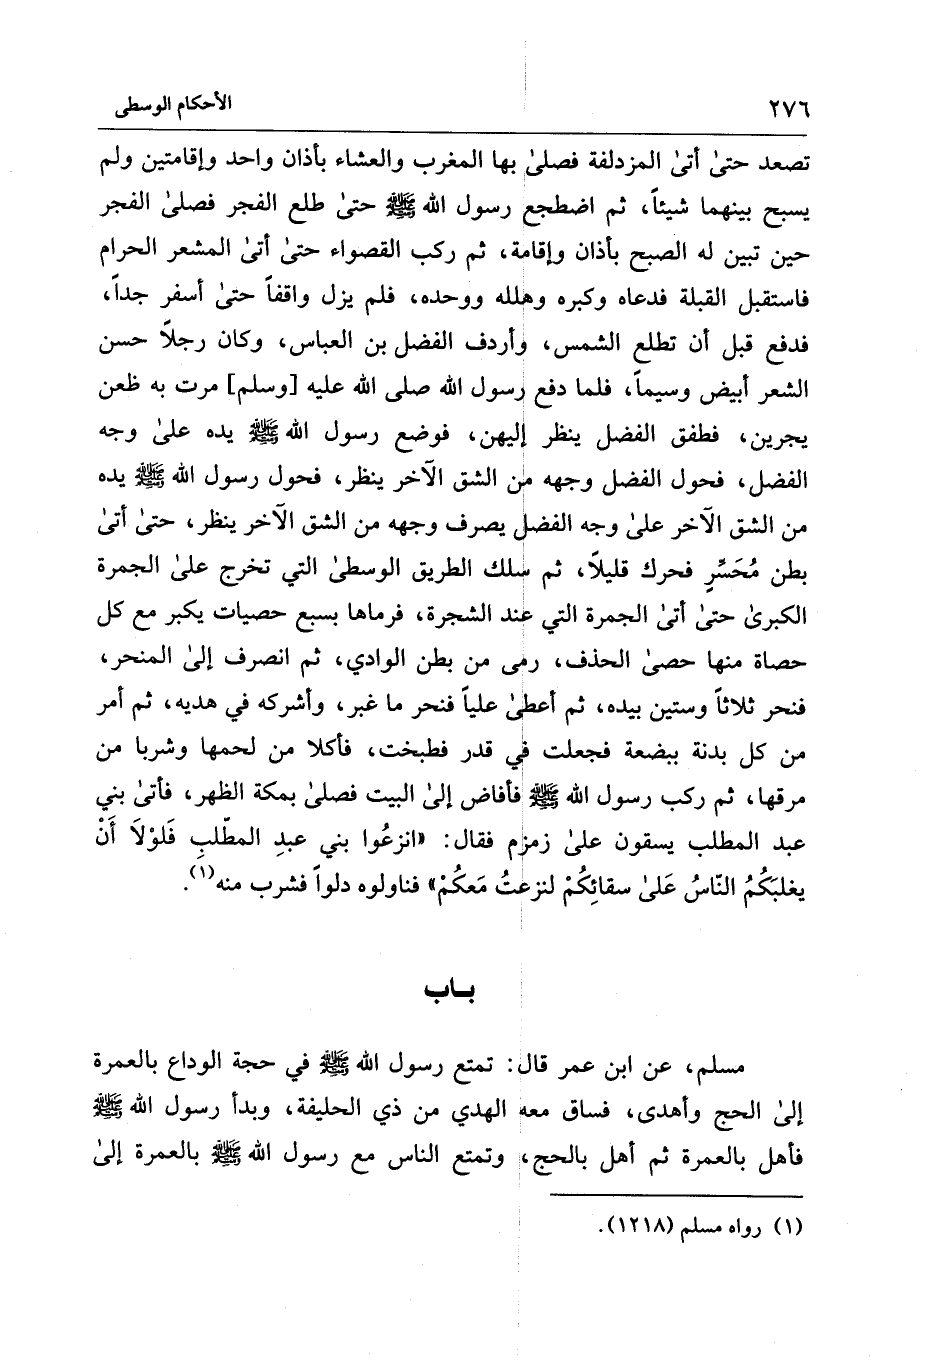 ٢٧٦ الأحكام الوسطى
تصعد حتىٰ أتىٰ المزدلفة فصلىٰ بها المغرب والعشاء بأذان واحد وإقامتين ولم
يسبح بينهما شيئاً، ثم اضطجع رسول الله ﷺ حتىٰ طلع الفجر فصلىٰ الفجر
حين تبين له الصبح بأذان وإقامة، ثم ركب القصواء حتىٰ أتىٰ المشعر الحرام
فاستقبل القبلة فدعاه وكبره وهلله ووحده، فلم يزل واقفاً حتىٰ أسفر جداً،
فدفع قبل أن تطلع الشمس، وأردف الفضل بن العباس، وكان رجلاً حسن
الشعر أبيض وسيماً، فلما دفع رسول الله صلى الله عليه [وسلم] مرت به ظعن
يجرين، فطفق الفضل ينظر إليهن، فوضع رسول الله ﷺ يده علىٰ وجه
الفضل، فحول الفضل وجهه من الشق الآخر ينظر، فحول رسول الله ﷺ يده
من الشق الآخر علىٰ وجه الفضل يصرف وجهه من الشق الآخر ينظر، حتىٰ أتىٰ
بطن مُحَسِّرٍ فحرك قليلاً، ثم سلك الطريق الوسطىٰ التي تخرج علىٰ الجمرة
الكبرىٰ حتىٰ أتىٰ الجمرة التي عند الشجرة، فرماها بسبع حصيات يكبر مع كل
حصاة منها حصىٰ الحذف، رمى من بطن الوادي، ثم انصرف إلىٰ المنحر،
فنحر ثلاثاً وستين بيده، ثم أعطىٰ علياً فنحر ما غبر، وأشركه في هديه، ثم أمر
من كل بدنة ببضعة فجعلت في قدر فطبخت، فأكلا من لحمها وشربا من
مرقها، ثم ركب رسول الله ﷺ فأفاض إلىٰ البيت فصلىٰ بمكة الظهر، فأتىٰ بني
عبد المطلب يسقون علىٰ زمزم فقال: «انزعُوا بني عبدِ المطّلبِ فَلوْلاَ أَنْ
يغلبَكُمُ النّاسُ عَلىٰ سقائِكُمْ لنزعتُ مَعكُمْ» فناولوه دلواً فشرب منه(١).
بـاب
مسلم، عن ابن عمر قال: تمتع رسول الله ﷺ في حجة الوداع بالعمرة
إلىٰ الحج وأهدى، فساق معه الهدي من ذي الحليفة، وبدأ رسول الله ﷺ
فأهل بالعمرة ثم أهل بالحج، وتمتع الناس مع رسول الله ﷺ بالعمرة إلىٰ
(١) رواه مسلم (١٢١٨).